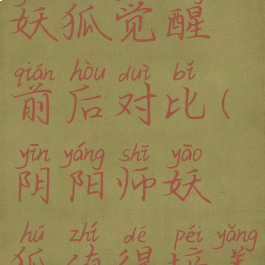 妖狐觉醒
qián hòu duì bǐ
前后对比（
yīn yáng shī yāo
阴阳师妖
hú zhí dé péi yǎng
狐值得培养